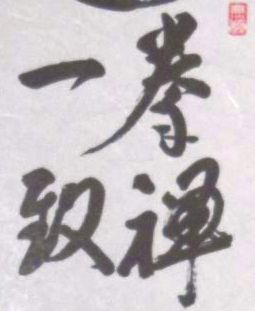 拳禅
一致